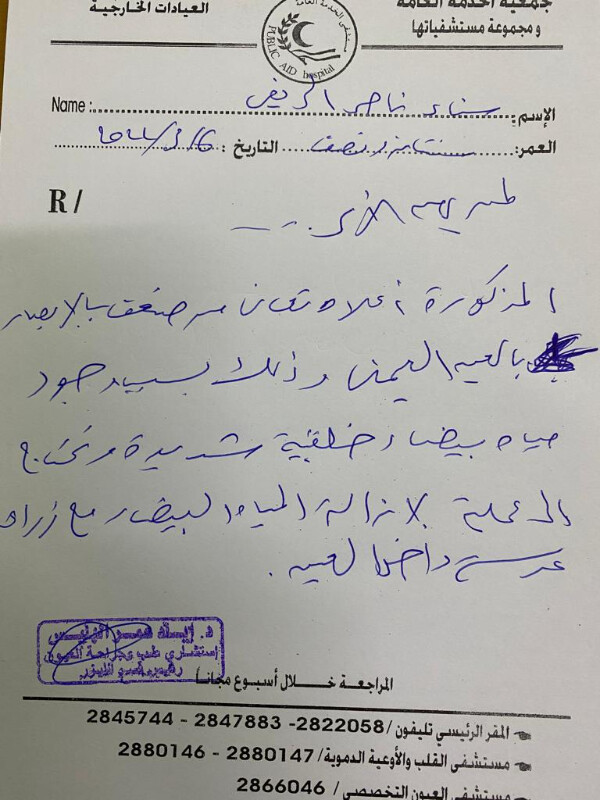 جمعية الخدمة العامة
ومجموعة مستشفياتها
العيادات الخارجية
PUBLIC AID hospital
الإسم: سناء ناصر
Name:
العمر: سنتان ونصف التاريخ:
R/
المذكورة أعلاه تعاني من ضعف بالإبصار
بالعين اليمنى وذلك بسبب وجود
مياه بيضاء خلفية شديدة وتحتاج
الى عملية لإزالة المياه البيضاء مع زراعة
عدسة داخل العين.
إستشاري طب وجراحة العيون
المراجعة خلال أسبوع مجاناً
المقر الرئيسي تليفون/ 2822058- 2847883 - 2845744
مستشفى القلب والأوعية الدموية/ 2880147 - 2880146
مستشفى العيون التخصصي/ 2866046